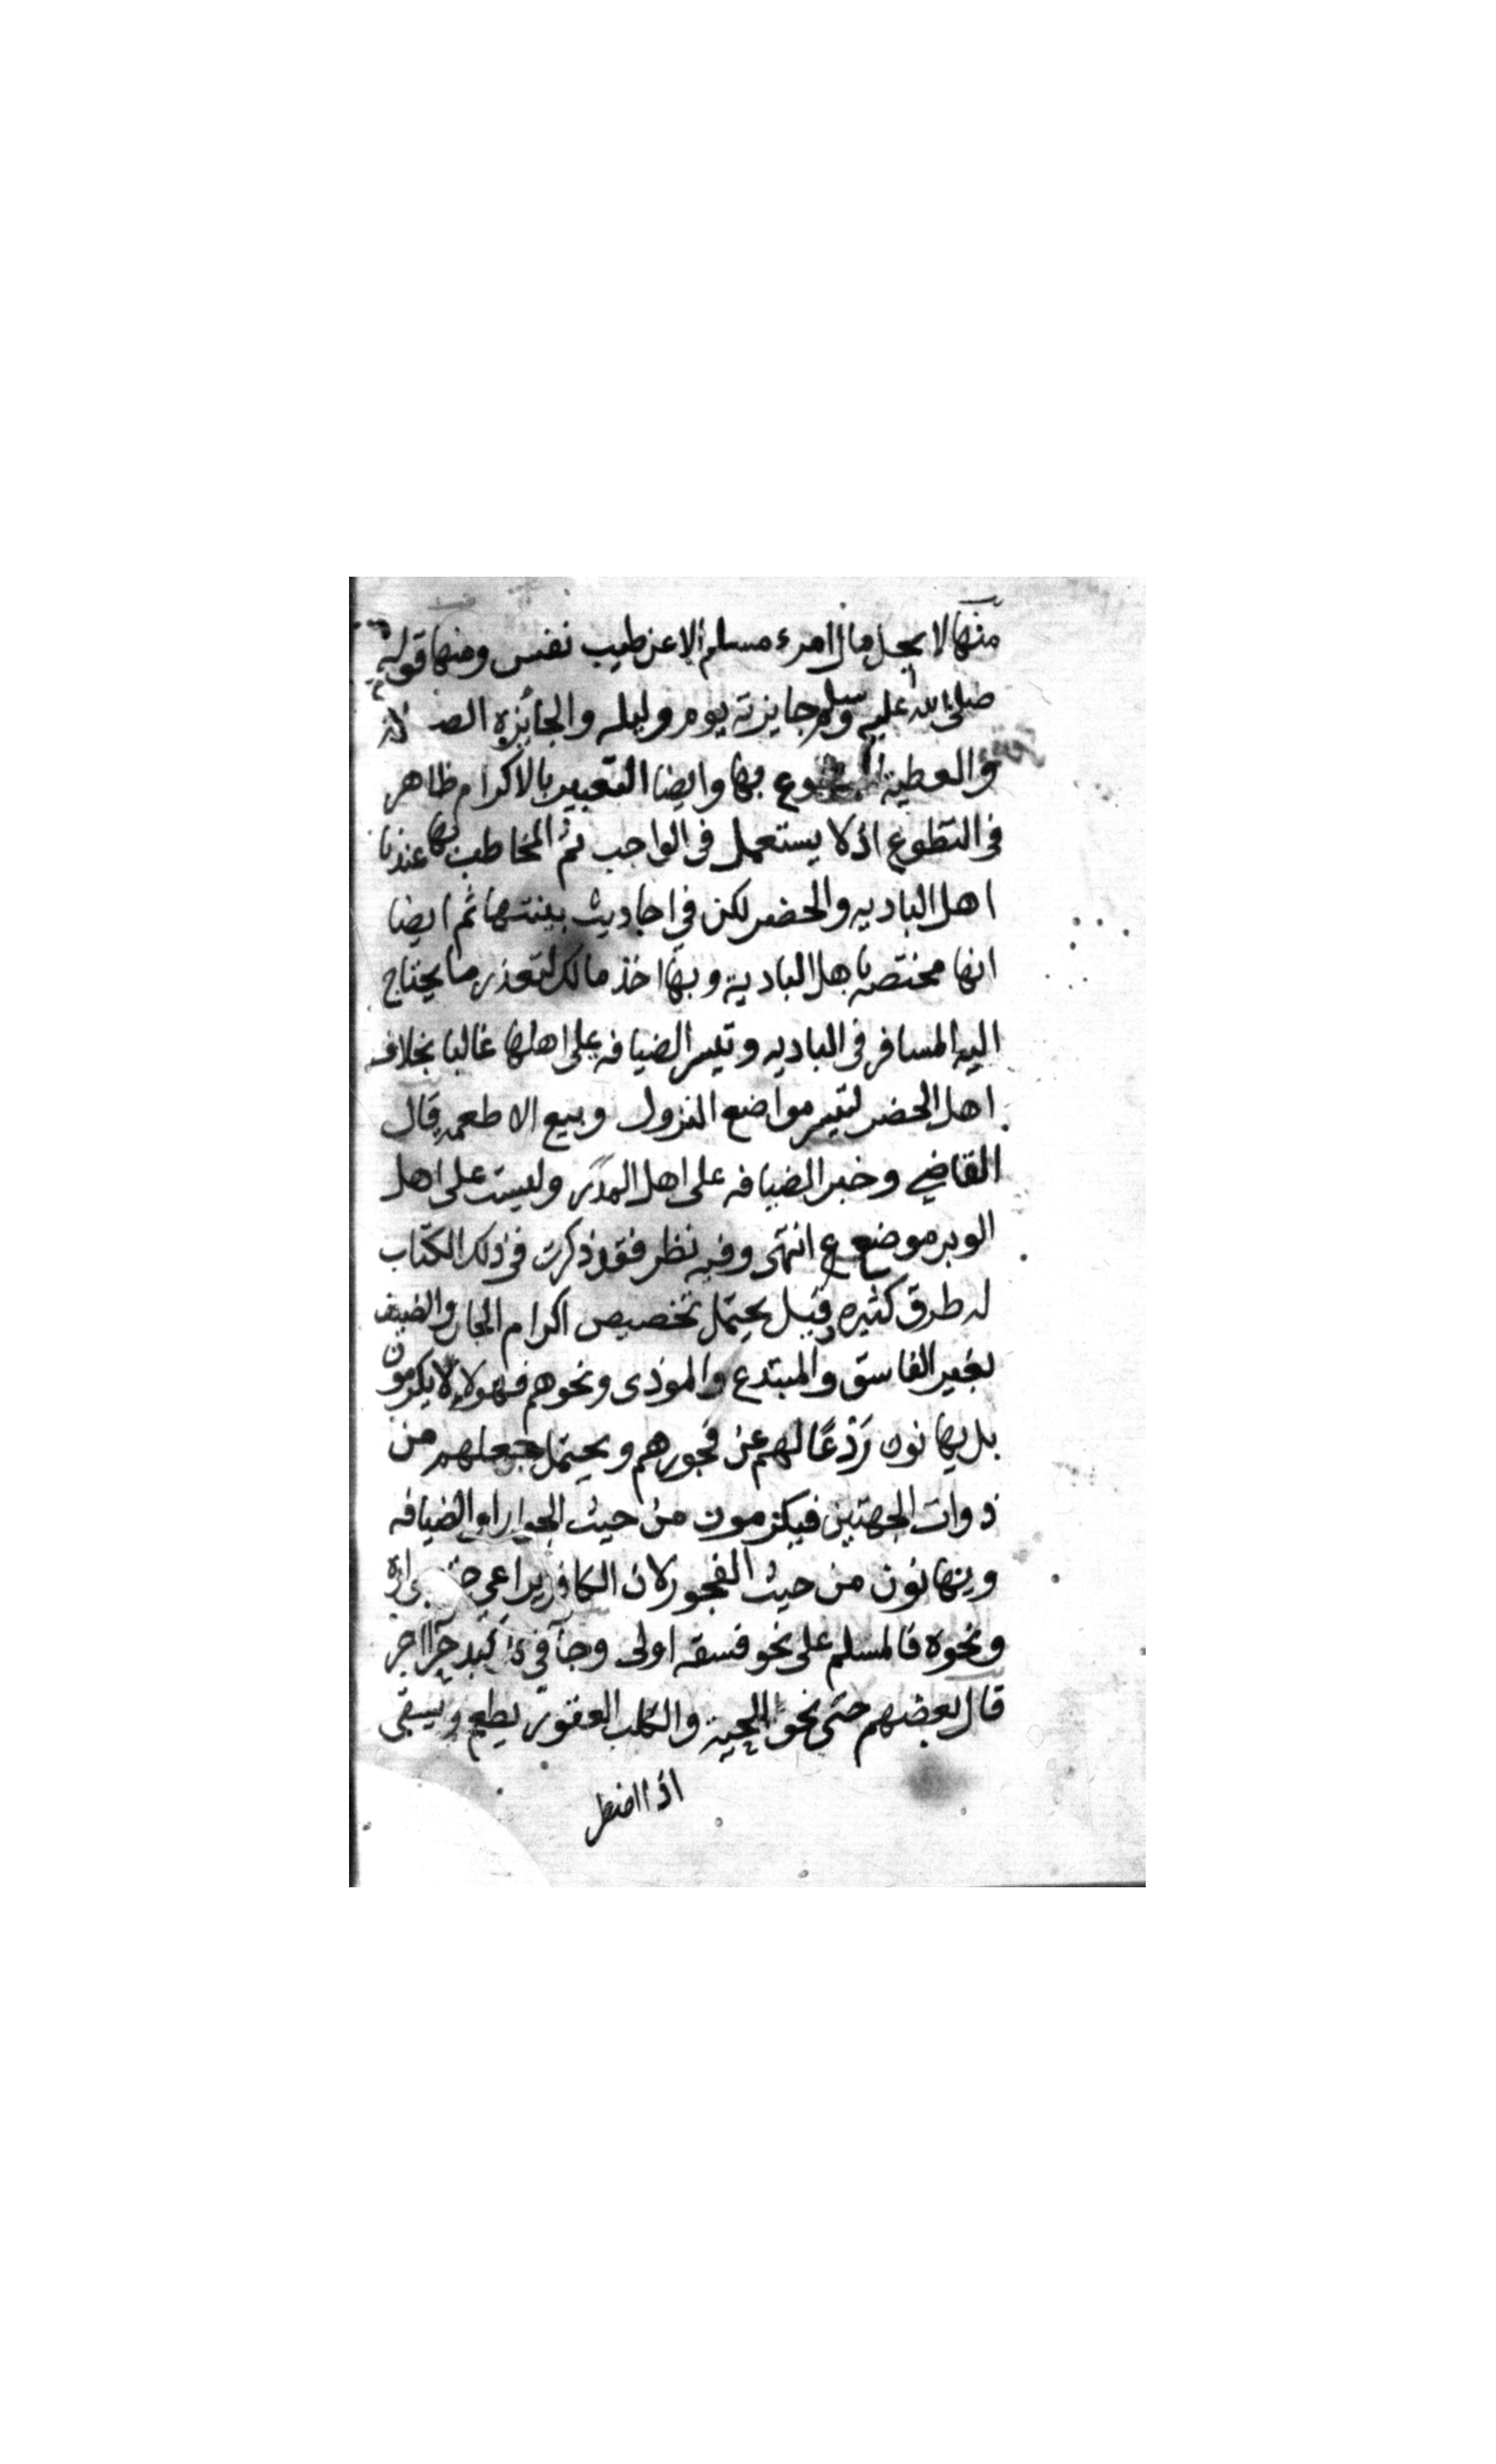 منها لا يحل مال امرء مسلم الا عن طيب نفس ومنها قوله
صلى الله عليه وسلم جايزته يوم وليله والجايزه
والعطية بها وايضا التعبير بالاكرام ظاهر
فى التطوع اذ لا يستعمل فى الواجب ثم المخاطب بها عندنا
اهل الباديه والحضر لكن في احاديث بينتها ثم ايضا
انها مختصه باهل البادية وبها اخذ مالك لتعذر ما يحتاج
اليه المسافر فى الباديه وتيسر الضيافه على اهلها غالبا بخلاف
اهل الحضر لتيسر مواضع النزول وبيع الاطعمه قال
القاضي وخبر الضيافه على اهل المدر وليست على اهل
الوبر موضوع انتهى وفيه نظر فقد ذكرت فى ذلك الكتاب
له طرق كثيره وقيل يحتمل تخصيص اكرام الجار والضيف
بغير الفاسق والمبتدع والموذى ونحوهم فهولاء لا يكرمون
بل يهانون رَدْعًا لهم عن فجورهم ويحتمل جعلهم من
ذوات الجهتين فيكرمون من حيث الجوار او الضيافه
وينهانون من حيث الفجور لان الكافر يراعي
ونحوه فالمسلم على نحو فسقه اولى وجآ في كبد حرّا اجر
قال بعضهم حتى نحو الحية والكلب العقور يطعم ويسقى
اذا اضطر